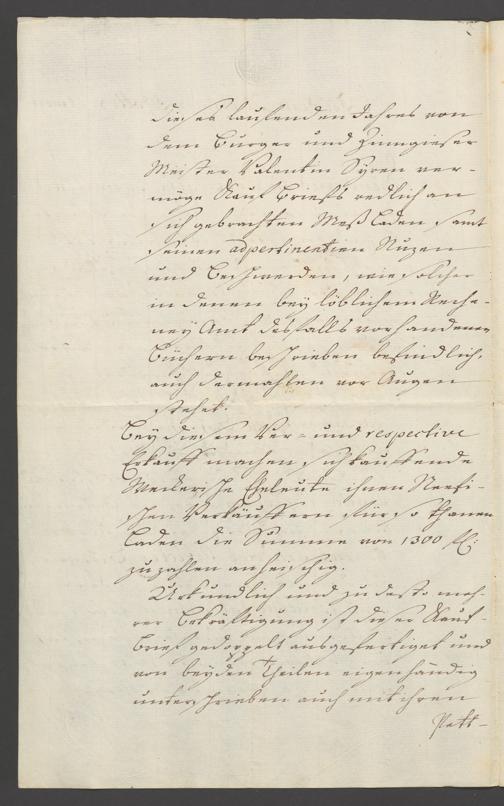 dieses laufenden Jahres von
dem Burger und Zinngieser
Meister Valentin Syren ver-
möge Kauf Briefs redlich an
sich gebrachten Meß Laden samt
seinen adpertinentien Nuzen
und Beschwerden, wie solcher
in denen bey löblichem Reche-
ney Amt desfalls vorhandenen
Büchern beschrieben befindlich,
auch dermahlen vor Augen
stehet.
Bey diesem Ver- und respective
Erkauff machen sich kauffende
Eheleute ihnen
schen Verkäuffern für so thanen
Laden die Summe von 1300 fl:
zu zahlen anheischig.
Urkundlich und zu desto meh-
rer Bekräftigung ist dieser Kauf-
brief gedoppelt ausgefertiget und
von beyden Theilen eigenhändig
unterschrieben auch mit ihren
Pett-